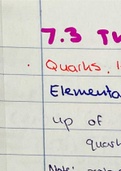 7.3 Th
Quarks,
Elementa
up of
quark
Note: